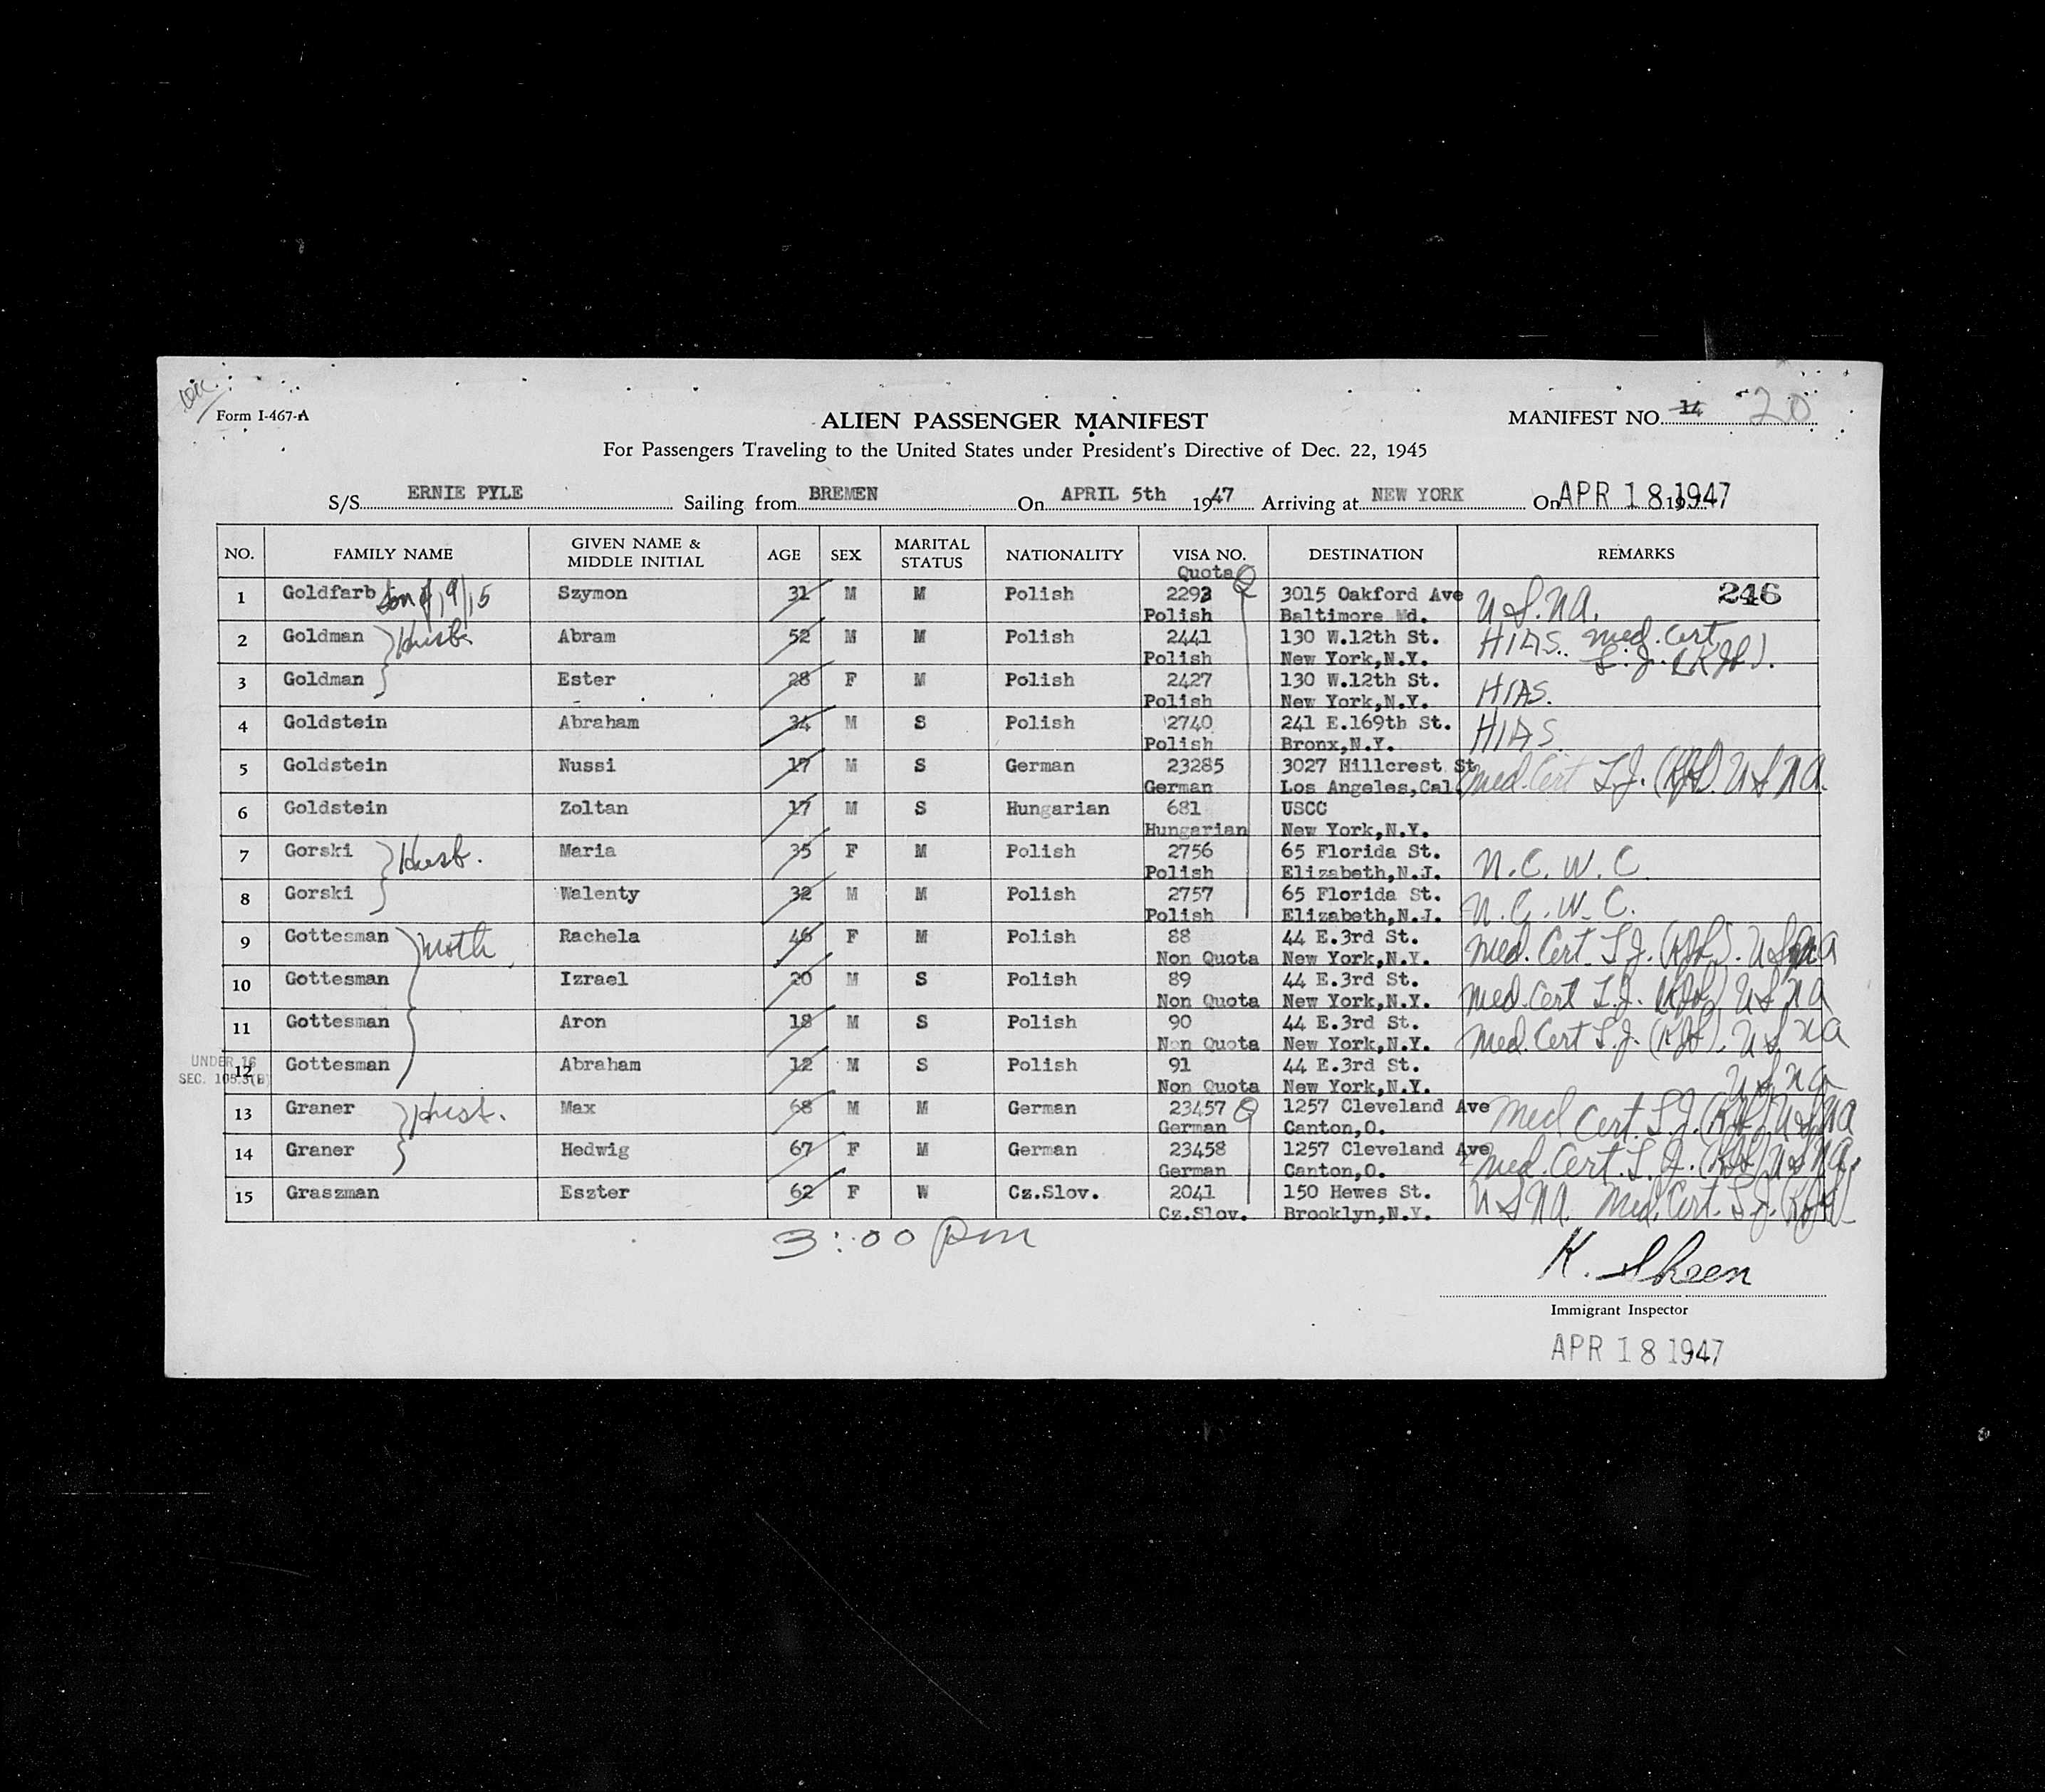 Form I-467-A
ALIEN PASSENGER MANIFEST
MANIFEST NO. 14 20
For Passengers Traveling to the United States under President's Directive of Dec. 22, 1945
S/S ERNIE PYLE Sailing from BREMEN On APRIL 5th 1947 Arriving at NEW YORK On APR 18 1947
NO. FAMILY NAME GIVEN NAME & MIDDLE INITIAL AGE SEX MARITAL STATUS NATIONALITY VISA NO. DESTINATION REMARKS
Quota Q
1 Goldfarb Son of 19/15 Szymon 31 M M Polish 2293 3015 Oakford Ave U.S.N.A. 246
Polish Baltimore Md.
2 Goldman Husb. Abram 52 M M Polish 2441 130 W.12th St. HIAS. med. Cert
Polish New York,N.Y.
3 Goldman Ester 28 F M Polish 2427 130 W.12th St. HIAS.
Polish New York,N.Y.
4 Goldstein Abraham 34 M S Polish 2740 241 E.169th St. HIAS
Polish Bronx,N.Y.
5 Goldstein Nussi 17 M S German 23285 3027 Hillcrest St med. Cert U S N A.
German Los Angeles,Cal.
6 Goldstein Zoltan 17 M S Hungarian 681 USCC
Hungarian New York,N.Y.
7 Gorski Husb. Maria 35 F M Polish 2756 65 Florida St. N.C.W.C.
Polish Elizabeth,N.J.
8 Gorski Walenty 32 M M Polish 2757 65 Florida St. N.C.W.C.
Polish Elizabeth,N.J.
9 Gottesman Moth. Rachela 46 F M Polish 88 44 E.3rd St. Med. Cert
Non Quota New York,N.Y.
10 Gottesman Izrael 20 M S Polish 89 44 E.3rd St. Med. Cert U S N A
Non Quota New York,N.Y.
11 Gottesman Aron 18 M S Polish 90 44 E.3rd St. Med. Cert U S N A
Non Quota New York,N.Y.
UNDER 16
SEC. 105.3(B)
12 Gottesman Abraham 12 M S Polish 91 44 E.3rd St. U S N A
Non Quota New York,N.Y.
13 Graner Husb. Max 68 M M German 23457 Q 1257 Cleveland Ave Med Cert. U S N A
German Canton,O.
14 Graner Hedwig 67 F M German 23458 1257 Cleveland Ave Med. Cert. U S N A.
German Canton,O.
15 Graszman Eszter 62 F W Cz.Slov. 2041 150 Hewes St. U S N A. Med. Cert.
Cz.Slov. Brooklyn,N.Y.
3:00 pm
K. Sheen
Immigrant Inspector
APR 18 1947